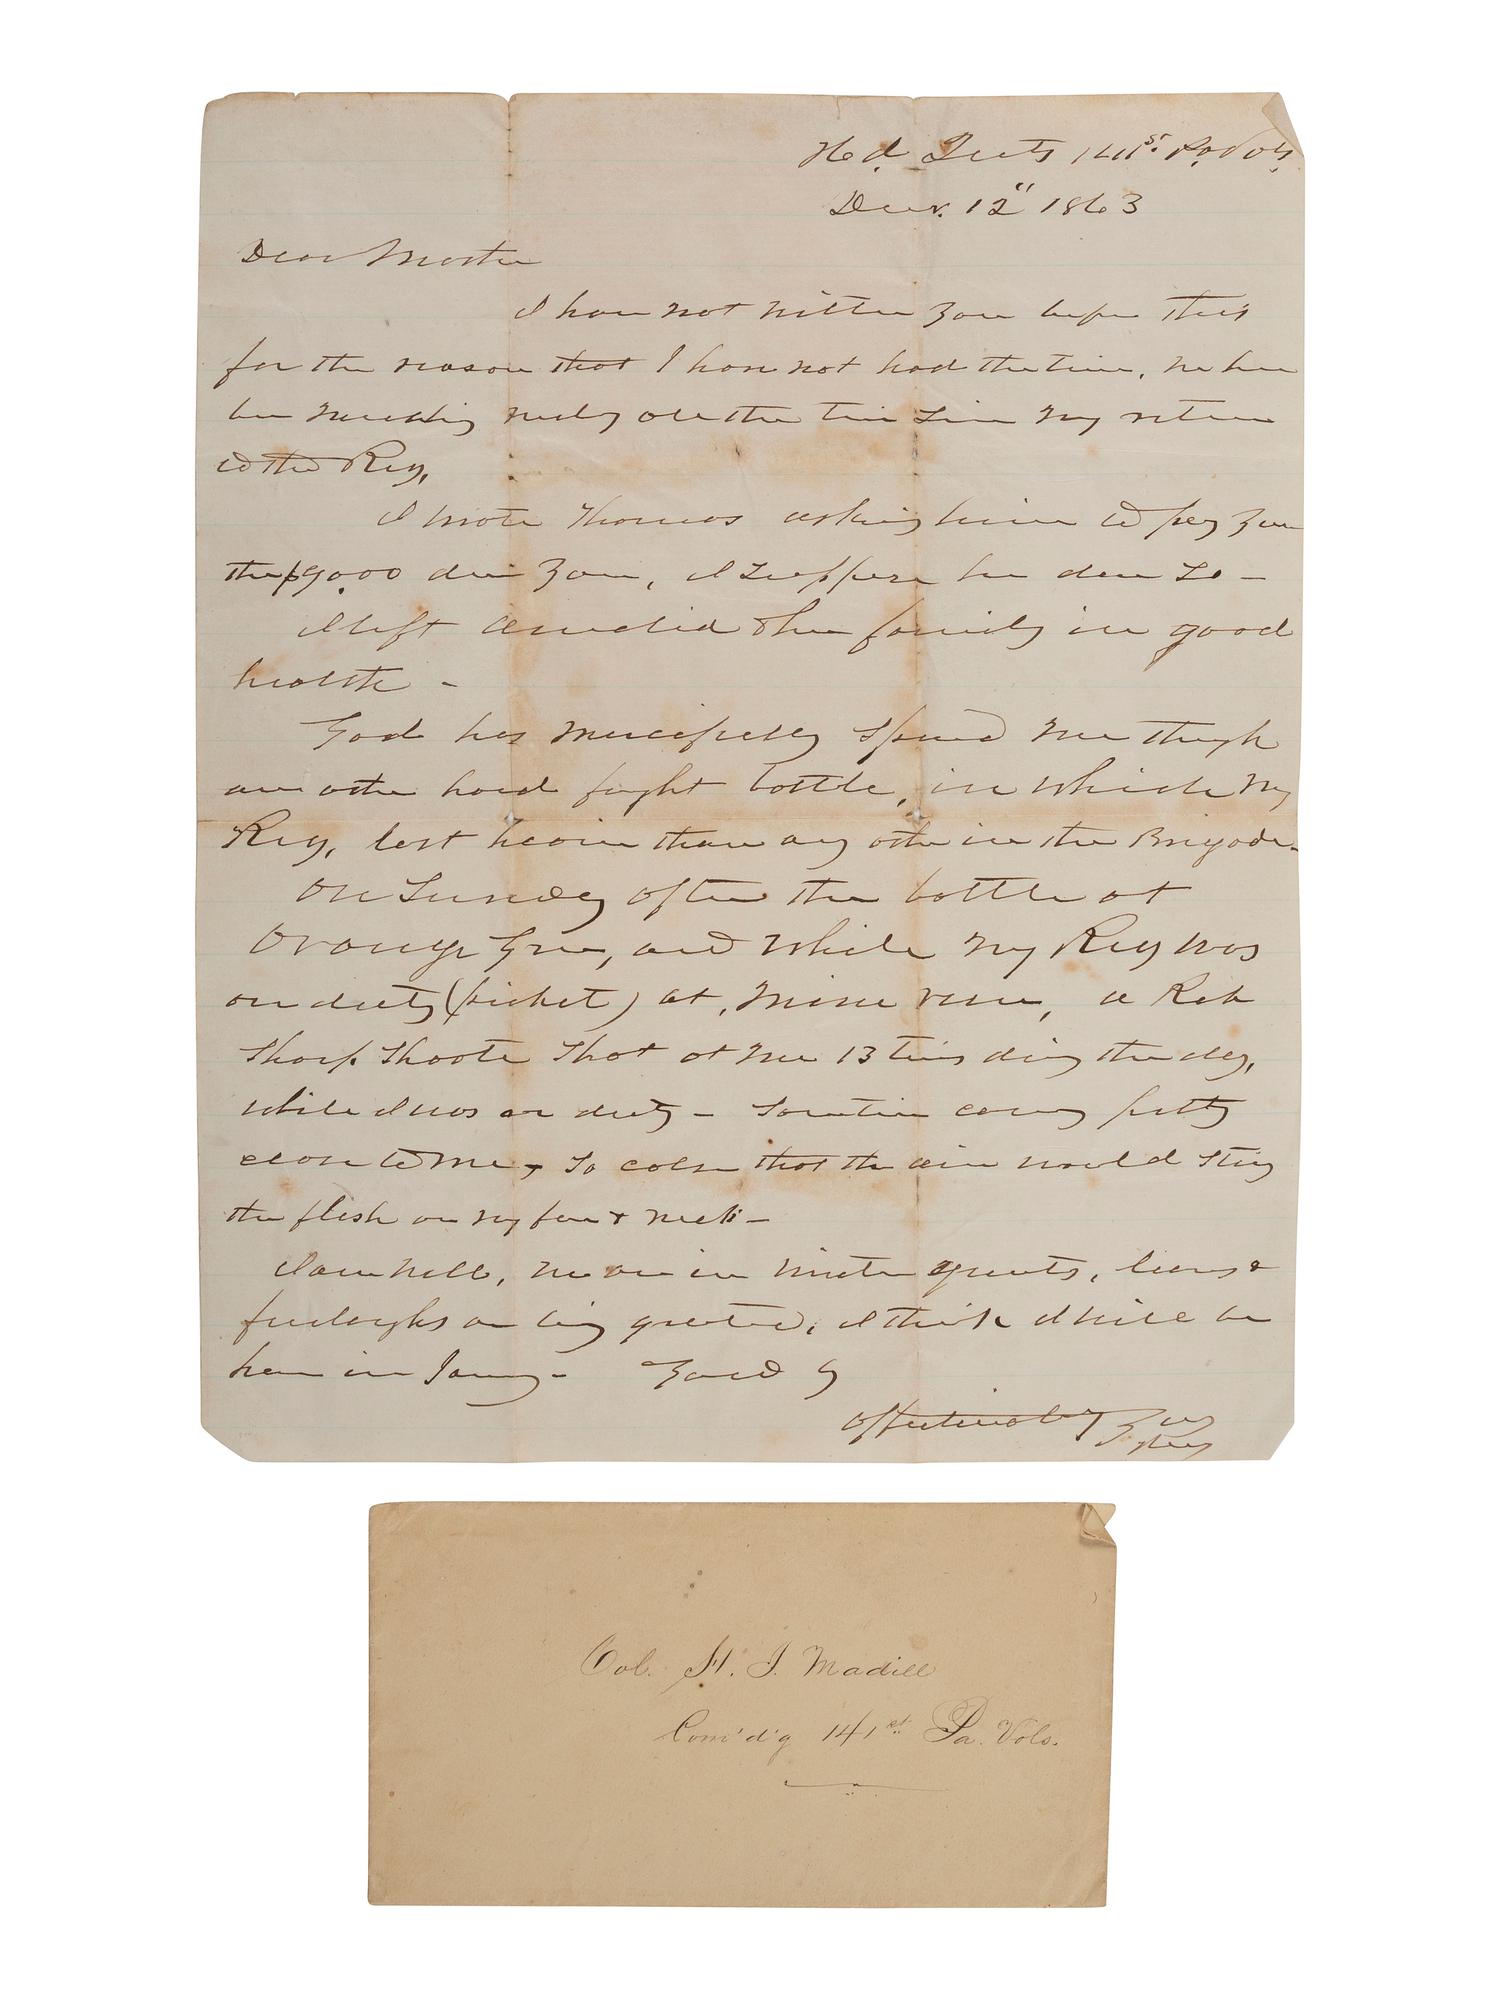 Hd. Qrts 141st Pa Vols.
Decr. 12" 1863
Dear Mother
I have not written you before this
for the reason that I have not had the time, we have
been marching nearly all the time since my return
to the Reg,
I wrote Thomas asking him to pay you
the $90.00 due you, I suppose he done so -
I left and the family in good
health -
God has mercifully spared me through
an other hard fought battle, in which my
Reg, lost heavier than any other in the Brigade -
On Sunday after the battle at
Orange Grove, and while my Reg was
on duty (picket) at, Mine run, a Reb
Sharp Shooter Shot at me 13 times during the day,
while I was on duty - Sometimes coming pretty
close to me, So close that the air would sting
the flesh on my face & neck -
I am well, we are in winter quarters, leaves &
furloughs are being granted, I think I will be
home in January - Good by
Affectionately Your
Col. H. J. Madill
Com'd'g 141st Pa. Vols.